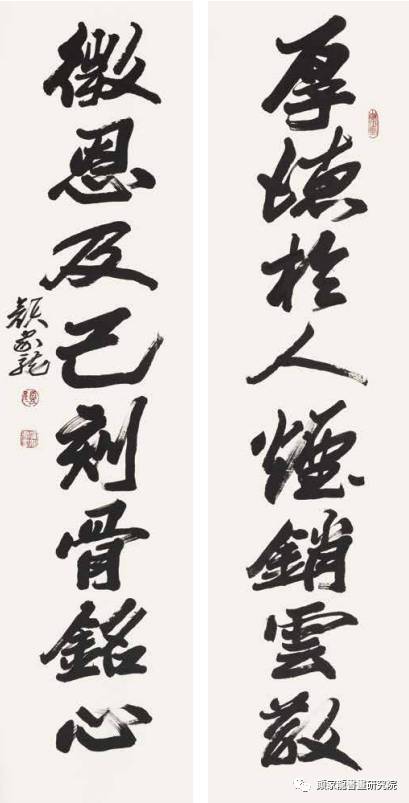 厚德於人煙銷雲散
微恩及己刻骨銘心
顧家龍
顧家龍書畫研究院